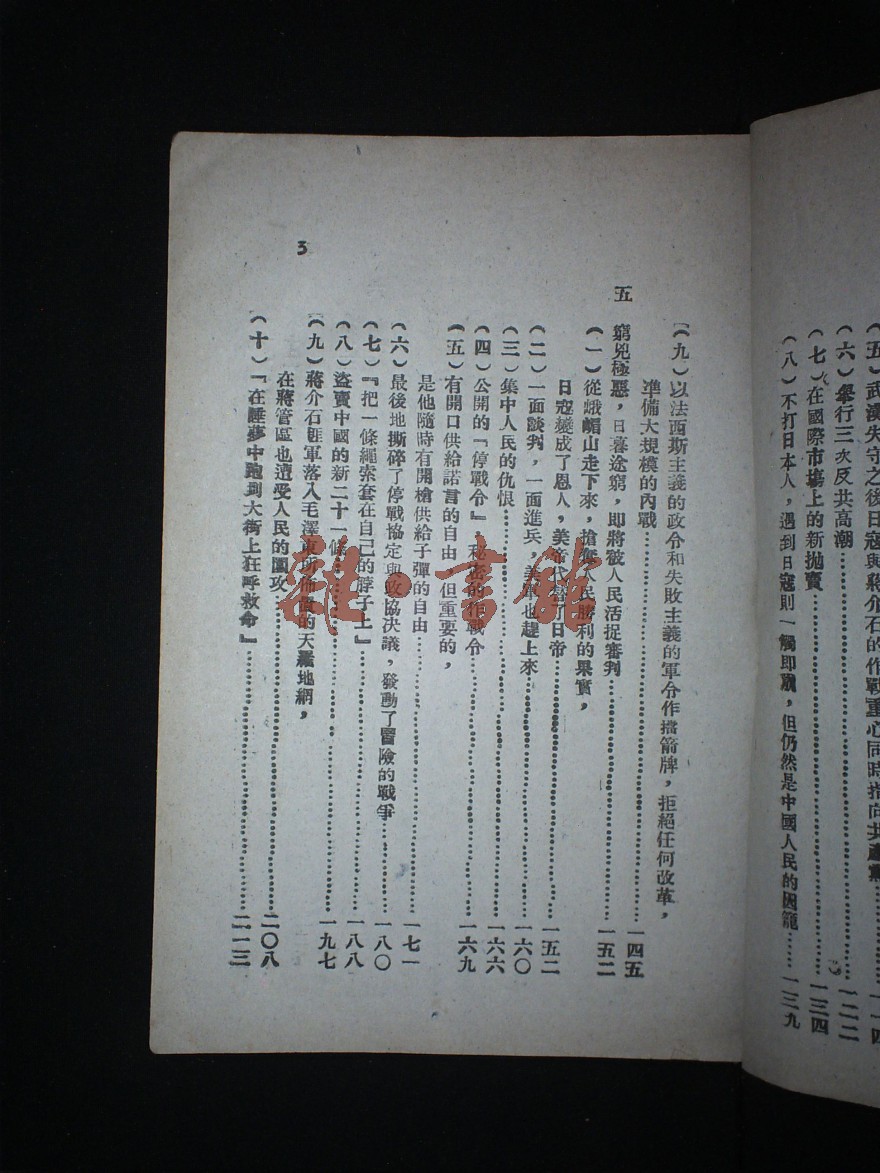 （五）武漢失守之後日寇與蔣介石的作戰重心同時指向共產黨……一一四
（六）舉行三次反共高潮……一二二
（七）在國際市場上的新拋賣……一三四
（八）不打日本人，遇到日寇則一觸即潰，但仍然是中國人民的囚籠……一三九
（九）以法西斯主義的政令和失敗主義的軍令作擋箭牌，拒絕任何改革，
準備大規模的內戰……一四五
五　窮兇極惡，日暮途窮，即將被人民活捉審判……一五二
（一）從峨嵋山走下來，搶奪人民勝利的果實，
日寇變成了恩人，美帝代替了日帝……一五二
（二）一面談判，一面進兵，美軍也趕上來……一六〇
（三）集中人民的仇恨……一六六
（四）公開的『停戰令』秘密的作戰令……一六九
（五）有開口供給諾言的自由，但重要的，
是他隨時有開槍供給子彈的自由……一七一
（六）最後地撕碎了停戰協定與政協決議，發動了冒險的戰爭……一八〇
（七）『把一條繩索套在自己的脖子上』……一八八
（八）盜賣中國的新二十一條……一九七
（九）蔣介石匪軍落入毛澤東所佈置的天羅地網，
在蔣管區也遭受人民的圍攻……二〇八
（十）『在睡夢中跑到大街上狂呼救命』……二一三
3
雜·書館